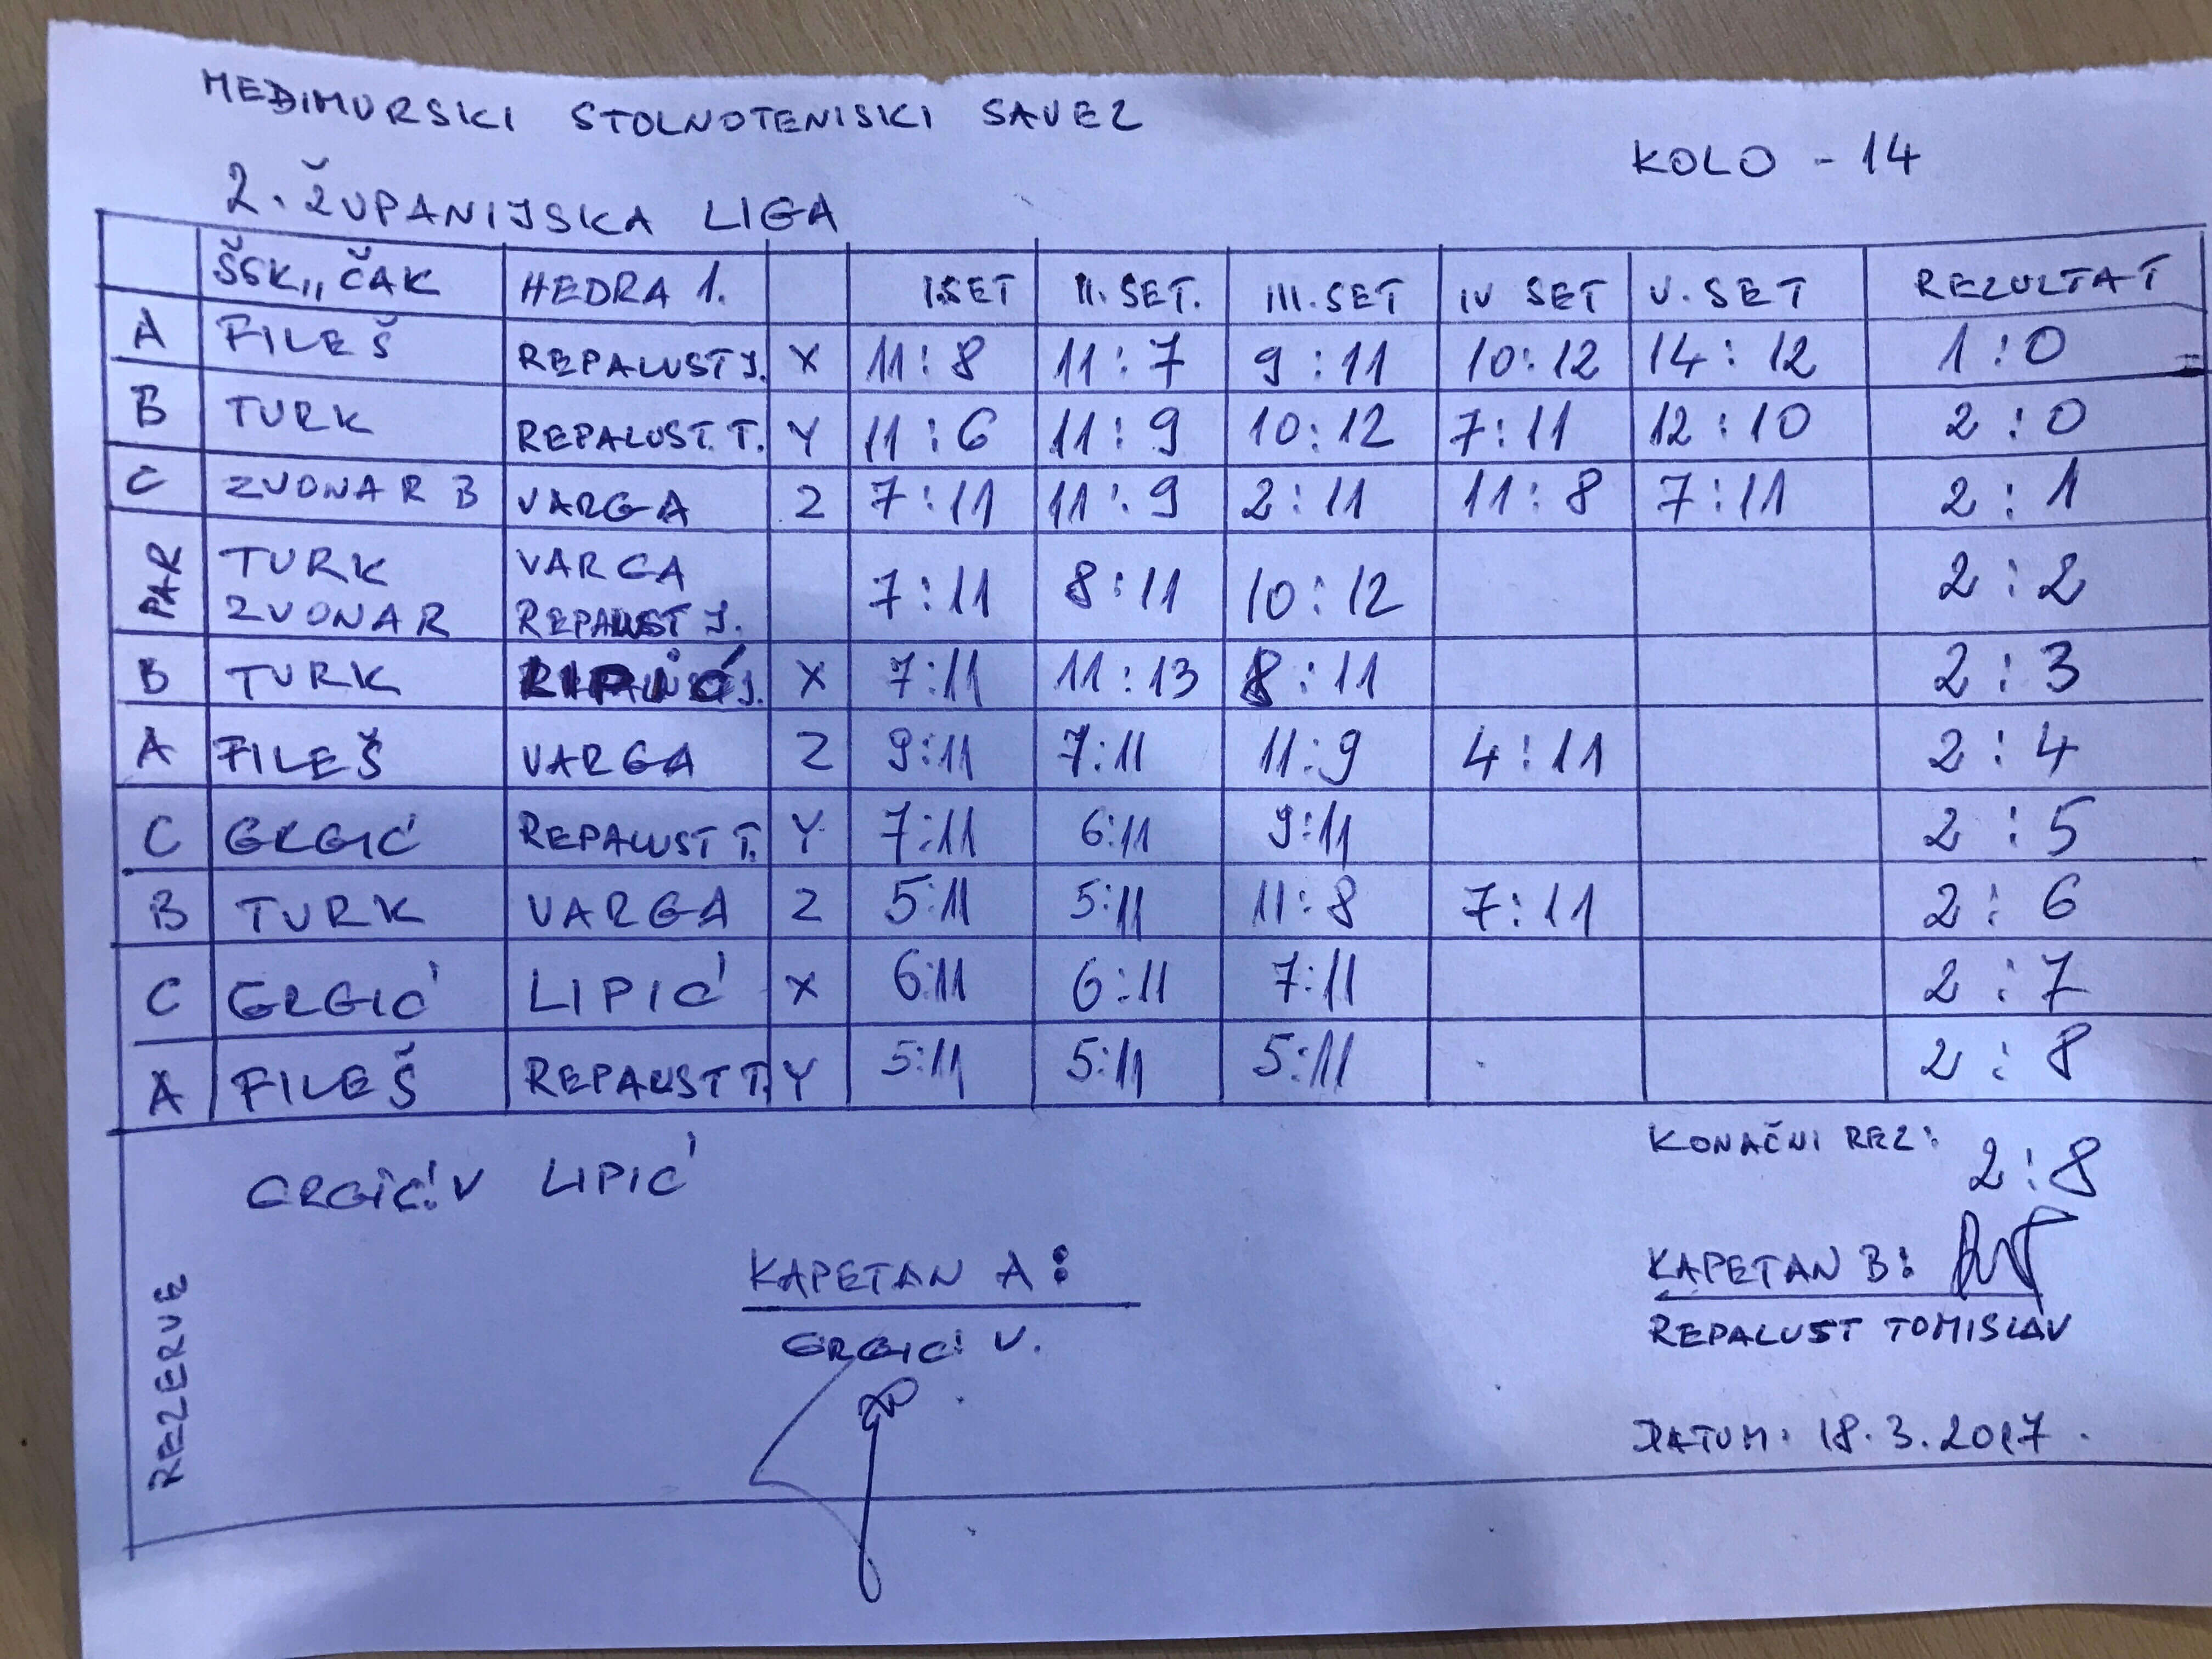 MEĐIMURSKI STOLNOTENISKI SAVEZ
KOLO - 14
2. ŽUPANIJSKA LIGA
ŠSK„ ČAK HEDRA 1. I.SET II. SET. III. SET IV SET V. SET REZULTAT
A FILEŠ REPALUST J. X 11:8 11:7 9:11 10:12 14:12 1:0
B TURK REPALUST. T. Y 11:6 11:9 10:12 7:11 12:10 2:0
C ZVONAR B VARGA Z 7:11 11:9 2:11 11:8 7:11 2:1
PAR TURK VARGA 7:11 8:11 10:12 2:2
ZVONAR REPALUST J.
B TURK LIPIĆ X 7:11 11:13 8:11 2:3
A FILEŠ VARGA Z 9:11 7:11 11:9 4:11 2:4
C GRGIĆ REPALUST T. Y 7:11 6:11 9:11 2:5
B TURK VARGA Z 5:11 5:11 11:8 7:11 2:6
C GRGIĆ LIPIĆ X 6:11 6:11 7:11 2:7
A FILEŠ REPALUST T. Y 5:11 5:11 5:11 2:8
REZERVE GRGIĆ V LIPIĆ
KONAČNI REZ: 2:8
KAPETAN A:
GRGIĆ V.
KAPETAN B:
REPALUST TOMISLAV
DATUM: 18.3.2017.